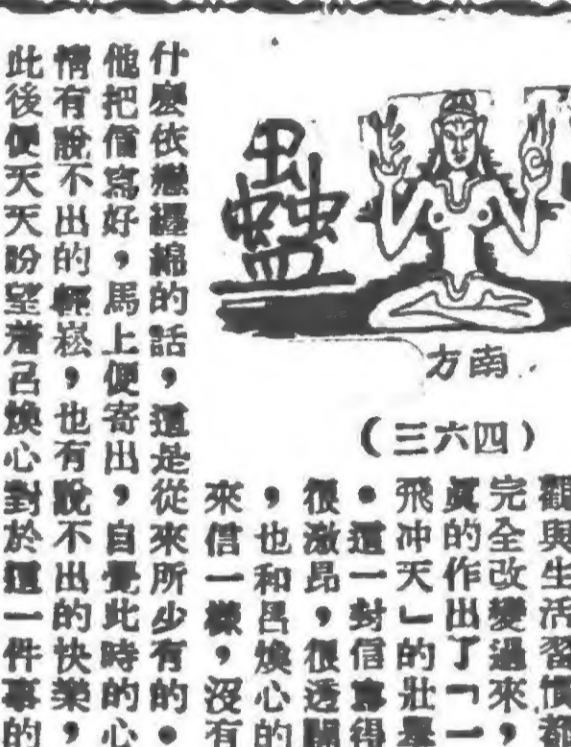 蠱
南方
(四六三)
觀與生活習慣都
完全改變過來,
真的作出了「一
飛冲天」的壯舉
。這一封信寫得
很激昂,很透闢
,也和呂煥心的
來信一樣,沒有
什麽依戀纏綿的話,這是從來所少有的。
他把信寫好,馬上便寄出,自覺此時的心
情有說不出的輕鬆,也有說不出的快樂,
此後便天天盼望着呂煥心對於這一件事的